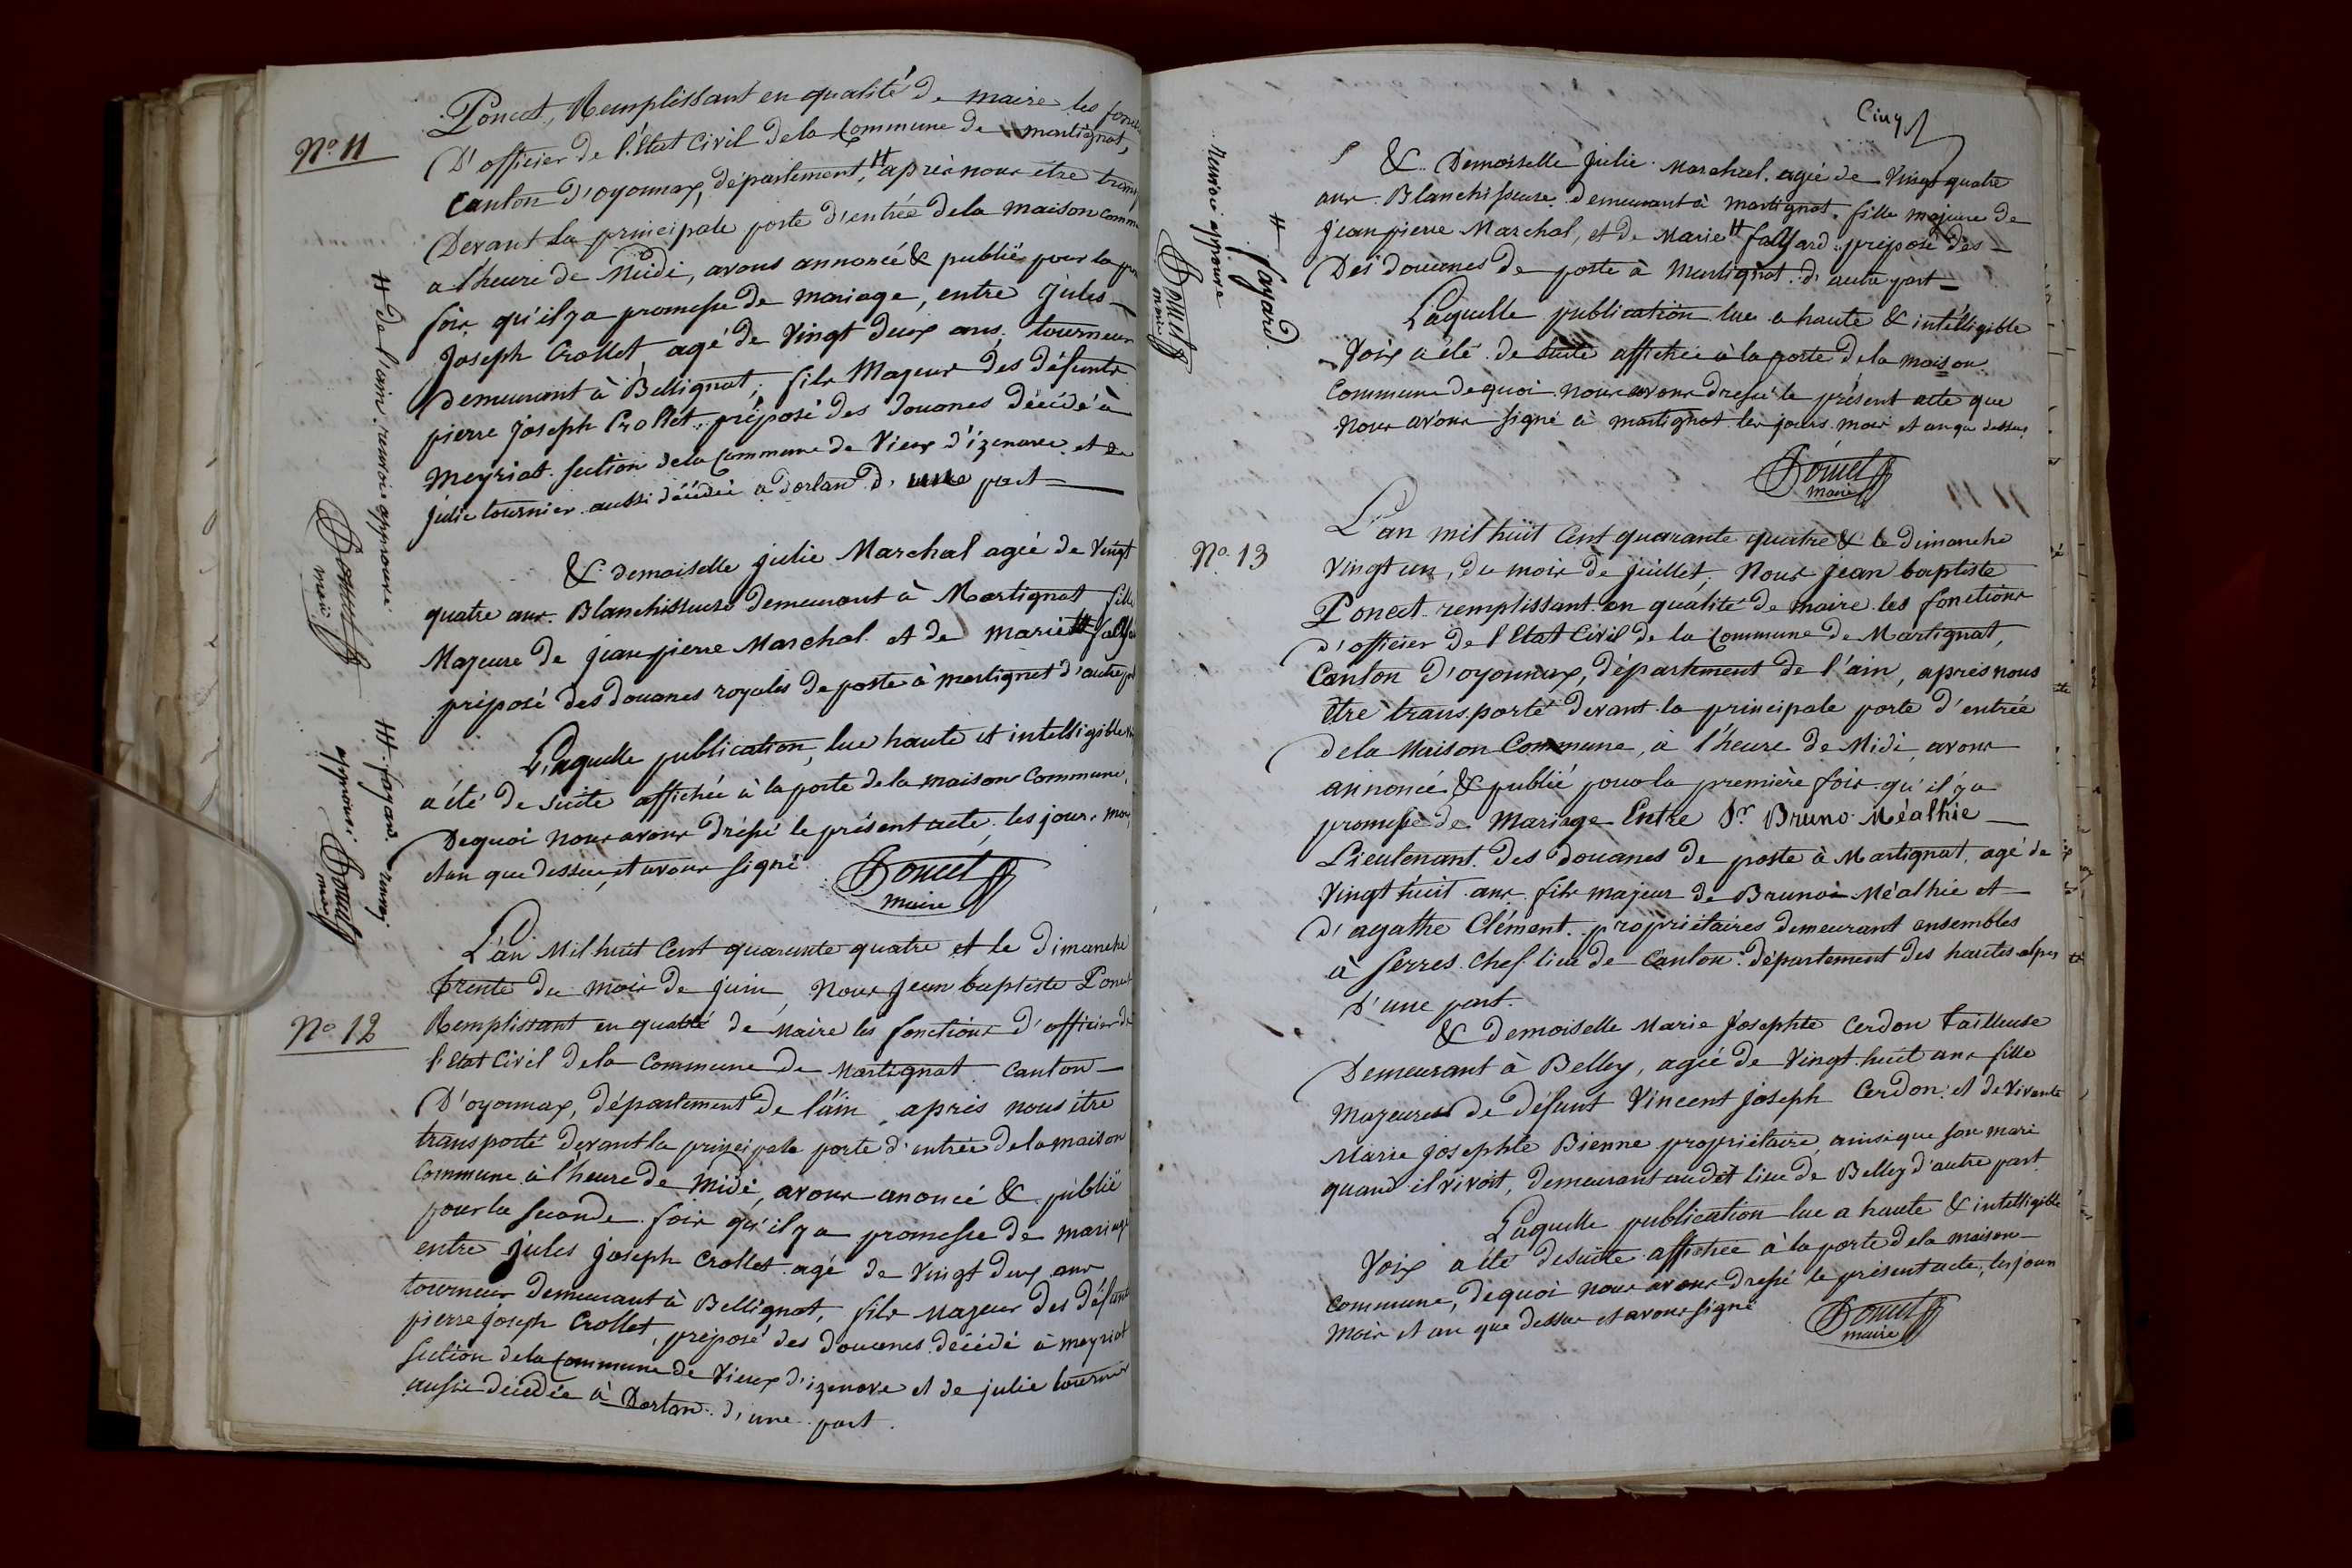 Nº 11
Poncet, Remplissant en qualité de maire les
D'officier de l'Etat Civil de la Commune de martignat,
Canton d'oyonnax, département, # après nous etre
Devant la principale porte d'entrée de la maison
a l'heure de Midi, avons annoncé & publié pour la
fois qu'il y a promesse de mariage, entre Jules
Joseph Crollet agé de Vingt deux ans, tourneur
demeurant à Bellignat, fils Majeur des défunts
pierre Joseph Crollet préposé des Douanes décédé à
Meyriat section de la Commune de Vieux d'izenave et de
julie tournier aussi décédée a dortan d'une part
& demoiselle julie Marchal agée de Vingt
quatre ans Blanchisseuse demeurant à Martignat fille
Majeure de jean pierre Marchal et de marie #
préposé des douanes royales de poste à martignat d'autre
Laquelle publication, lue haute et intelligible
a été de suite affichée à la porte de la maison Commune,
Dequoi nous avons dréssé le présent acte, les jour, mois
et an que dessus, et avons signé
Poncet
maire
# de l'ain renvoie approuvé
Poncet
maire
# fayard renvoi
approuvé Poncet
maire
L'an Mil huit Cent quarante quatre et le Dimanche
trente du mois de juin, Nous jean baptiste Poncet
Nº 12
Remplissant en qualité de Maire les fonctions d'officier de
l'Etat Civil de la Commune de Martignat Canton
D'oyonnax, département de l'ain, après nous être
transporté devant la principale porte d'entrée de la maison
Commune à l'heure de Midi, avons anoncé & publié
pour la seconde fois qu'il y a promesse de mariage
entre Jules Joseph Crollet agé de Vingt deux ans
tourneur demeurant à Bellignat, fils Majeur des défunts
pierre joseph Crollet, préposé des Douanes décédé à meyriat
section de la Commune de Vieux d'izenave et de julie tournier
aussie décédée à Dortan d'une part.
Cinq
& Demoiselle Julie Marchal agée de Vingt quatre
ans Blanchisseuse demeurant à martignat fille majeure de
Jean pierre Marchal, et de Marie # préposé des
Des douanes de poste à Martignat d'autre part
Laquelle publication lue a haute & intelligible
Voix a été de suite affichée à la porte de la maison
Commune dequoi nous avons dressé le présent acte que
Nous avons signé à martignat les jours mois et an que dessus
Poncet
maire
# fayard.
Renvoie approuvé
Poncet
maire
Nº 13
L'an mil huit Cent quarante quatre & le dimanche
Vingt un, du mois de juillet, Nous Jean baptiste
Poncet remplissant en qualité de maire les fonctions
d'officier de l'Etat Civil de la Commune de Martignat,
Canton D'oyonnax, département de l'ain, après nous
être transporté devant la principale porte d'entrée
de la Maison Commune, à l'heure de Midi, avons
annoncé & publié pour la première fois qu'il y a
promesse de Mariage Entre Sr. Bruno Méalhie
Lieutenant des Douanes de poste à Martignat, agé de
Vingt huit ans fils majeur de Bruno Méalhie et
d'agathe Clément propriétaires demeurant ensembles
à Serres chef lieu de Canton département des hautes alpes
D'une part.
& demoiselle Marie Josephte Cerdon tailleuse
Demeurant à Belley, agée de Vingt huit ans fille
Majeure de défunt Vincent Joseph Cerdon et de Vivante
Marie Josephte Bienne propriétaire ainsi que son mari
quand il vivoit, demeurant audit lieu de Belley d'autre part
Laquelle publication lue a haute & intelligible
Voix a été desuite affichée à la porte de la maison
Commune, dequoi nous avons dressé le présent acte, les jour
Mois et an que dessus et avons signé
Poncet
maire